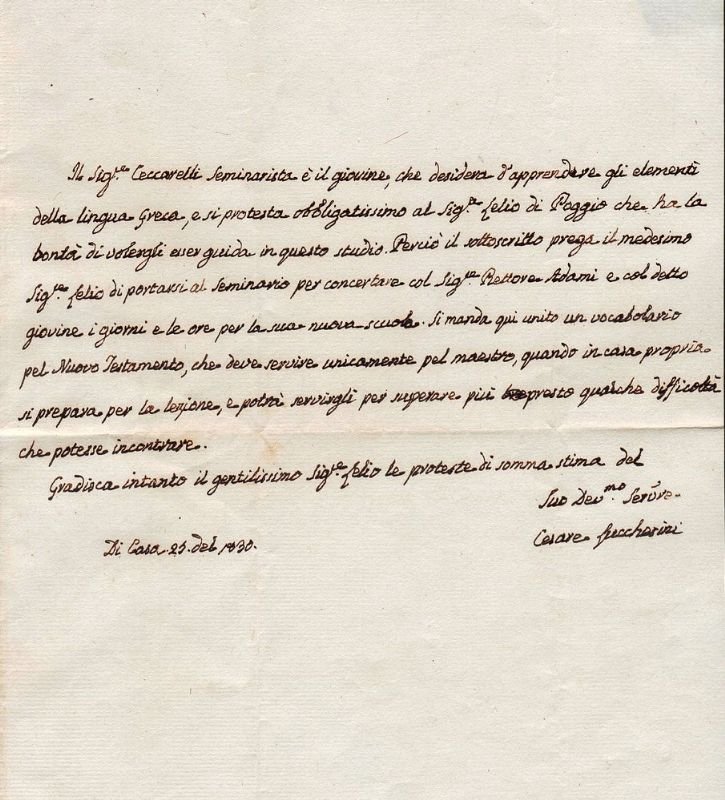 Il Sig.re Ceccarelli Seminarista è il giovine, che desidera d'apprendere gli elementi
della lingua Greca, e si protesta obbligatissimo al Sig.re felio di Poggio che ha la
bontà di volergli esser guida in questo studio. Perciò il sottoscritto prega il medesimo
Sig.re felio di portarsi al Seminario per concertare col Sig.re Rettore Adami e col detto
giovine i giorni e le ore per la sua nuova scuola. Si manda qui unito un vocabolario
pel Nuovo Testamento, che deve servire unicamente pel maestro, quando in casa propria
si prepara per la lezione, e potrà servirgli per superare più presto qualche difficoltà
che potesse incontrare.
Gradisca intanto il gentilissimo Sig.re felio le proteste di somma stima del
Suo Dev.mo Servre
Cesare
Di Casa 25. del 1830.